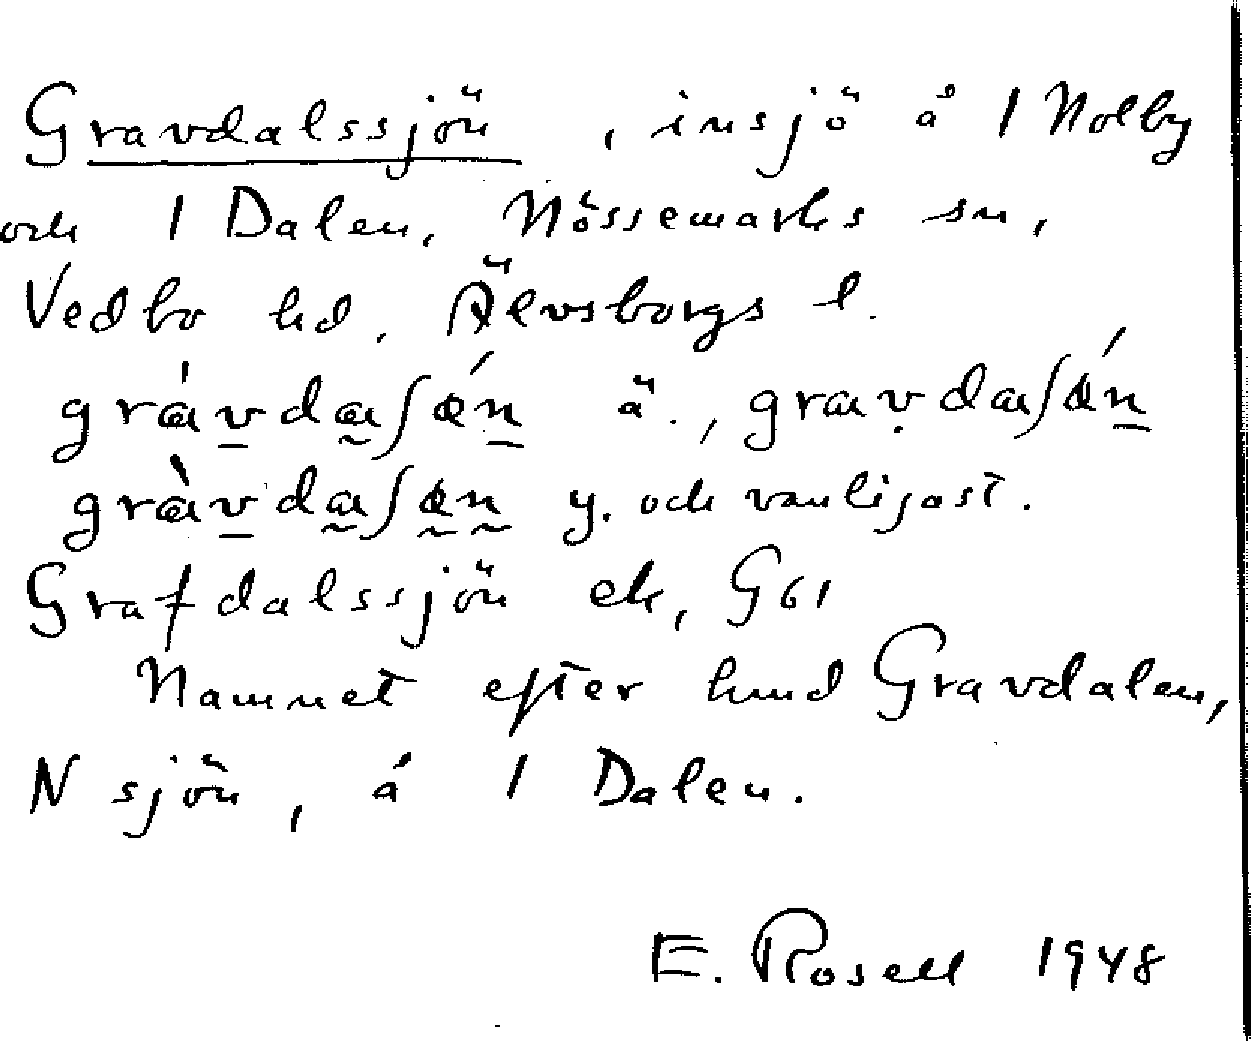 Gravdalssjön, insjö å 1 Nolby
och 1 Dalen, Nössemarks sn,
Vedbo hd, Älvsborgs l.
grávdaʃǿn ä., gravdaʃǿn
gràvdaʃøn y. och vanligast.
Grafdalssjön ek, G61
Namnet efter hmd Gravdalen,
N sjön, å 1 Dalen.
E. Rosell 1948